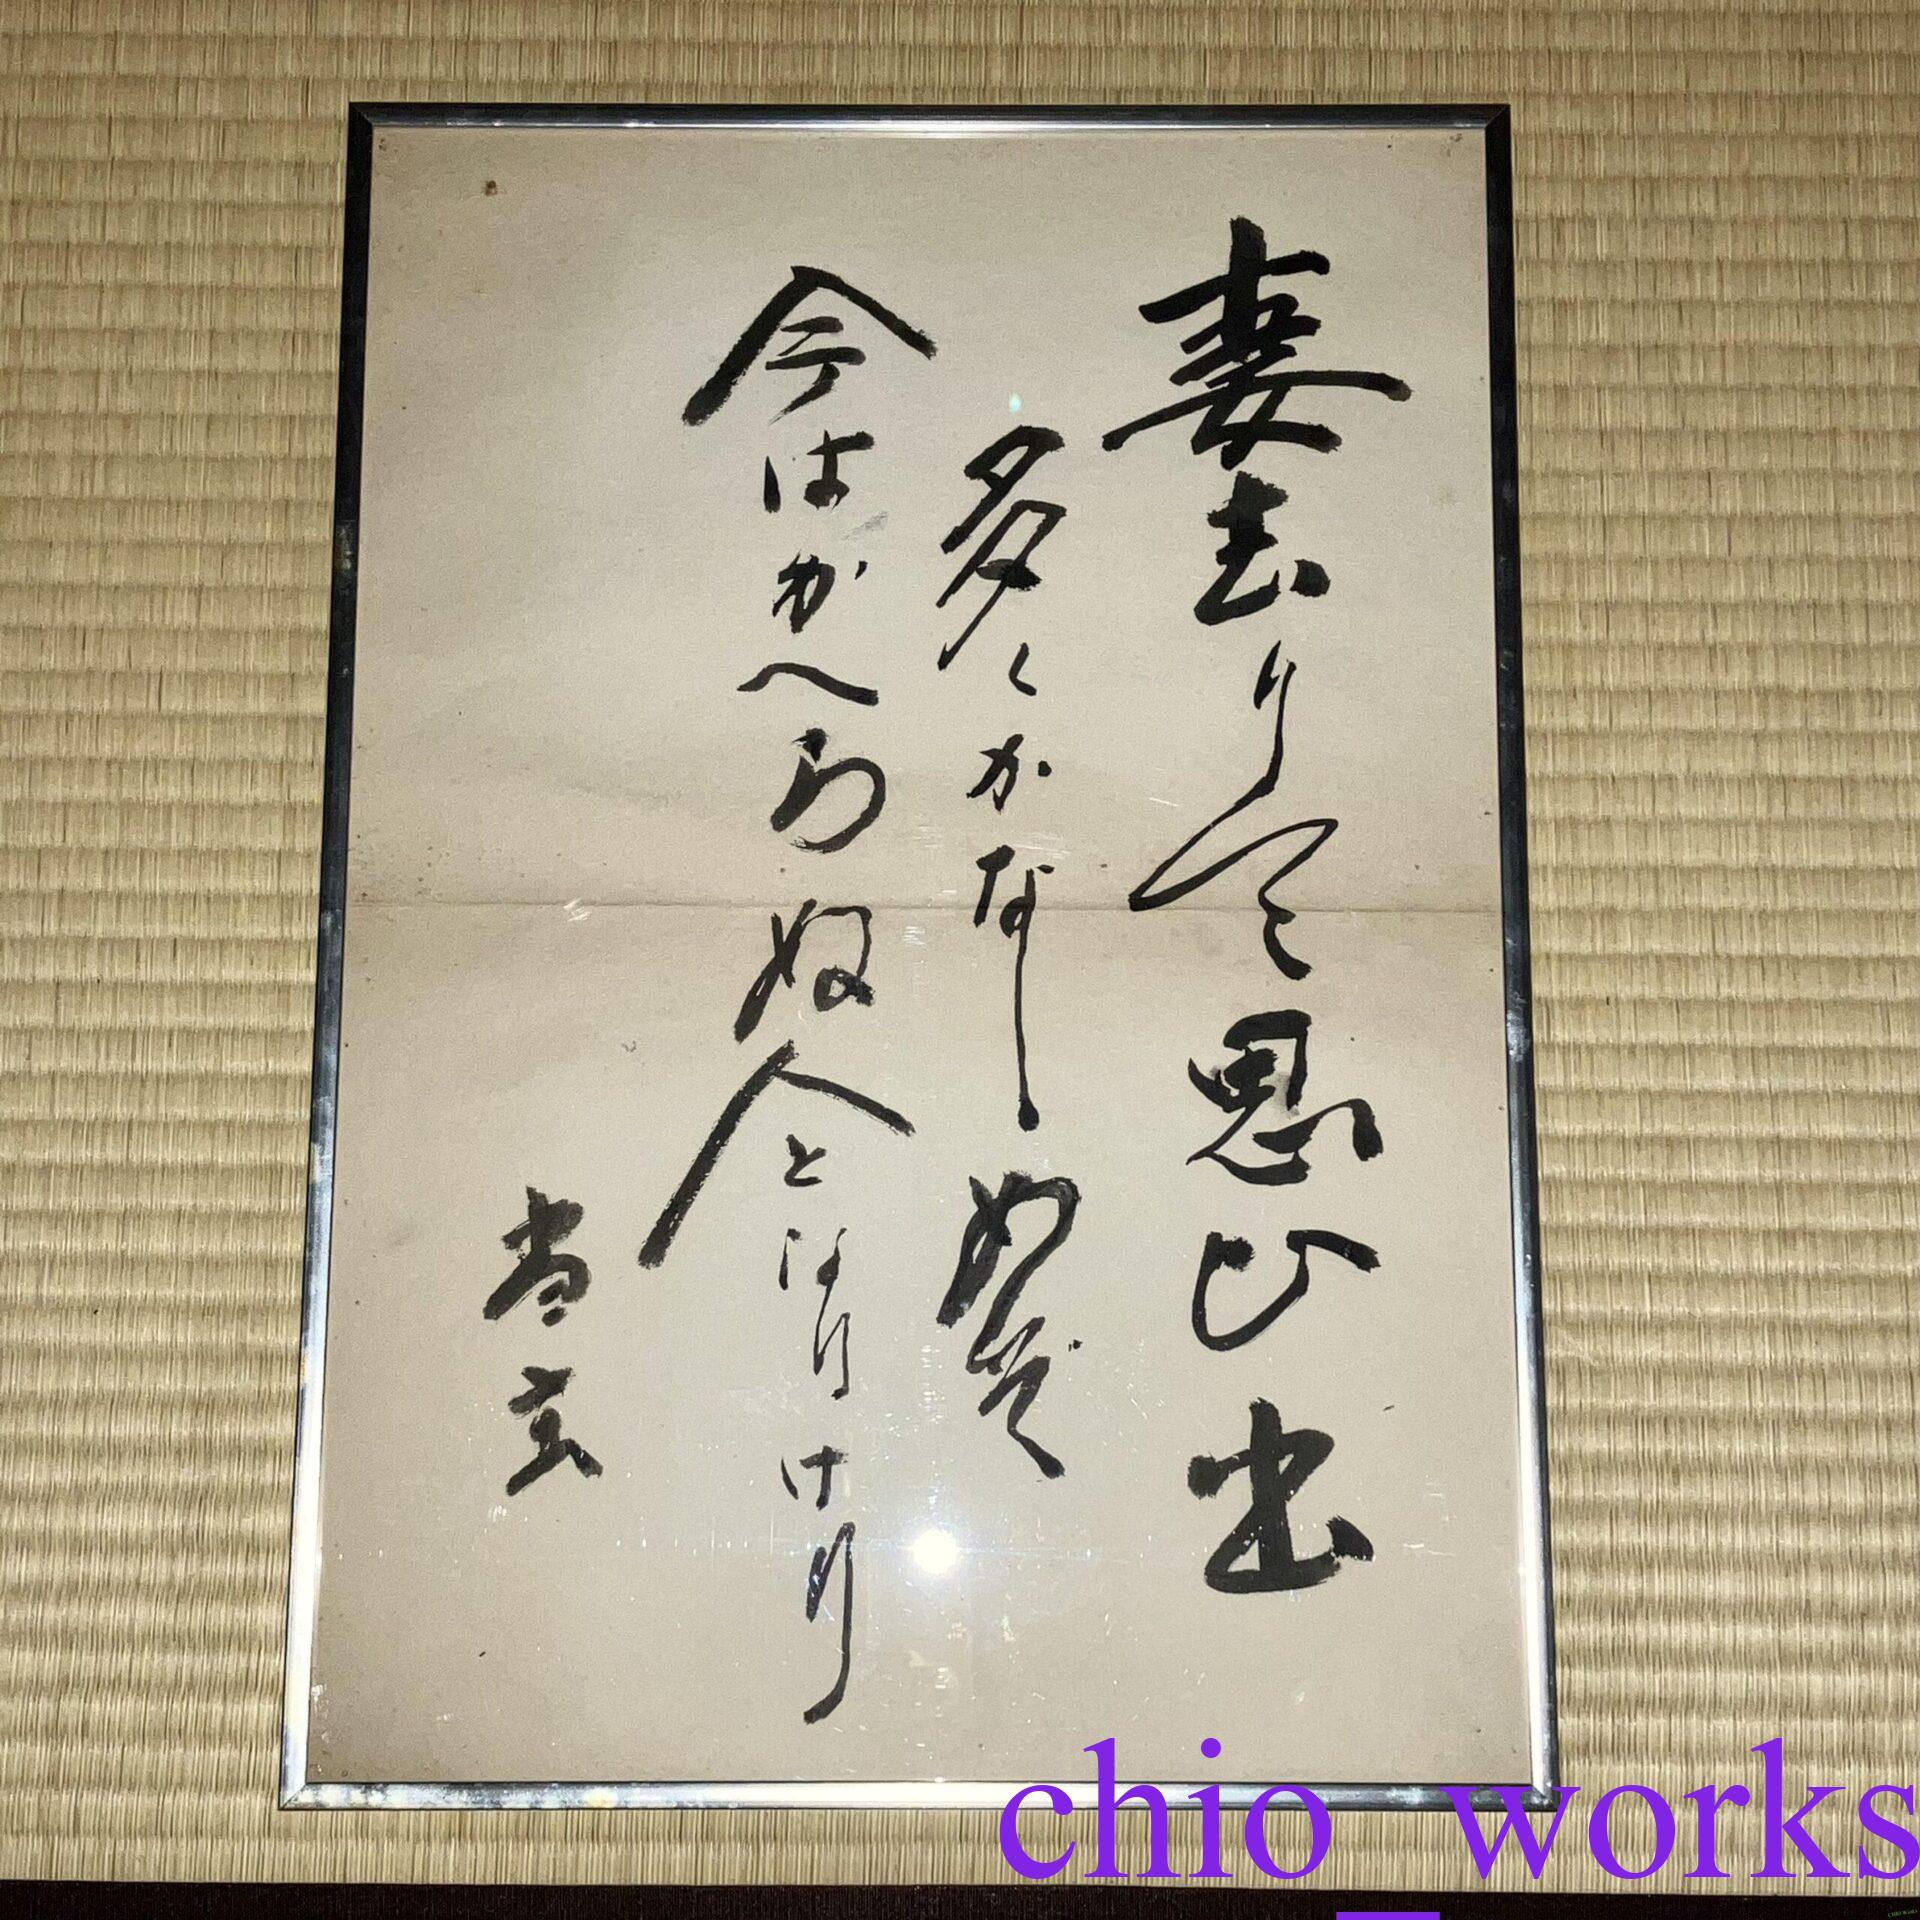 妻去りて思ひ出
多くかなしめど
今はかへらぬ人となりけり
chio_works